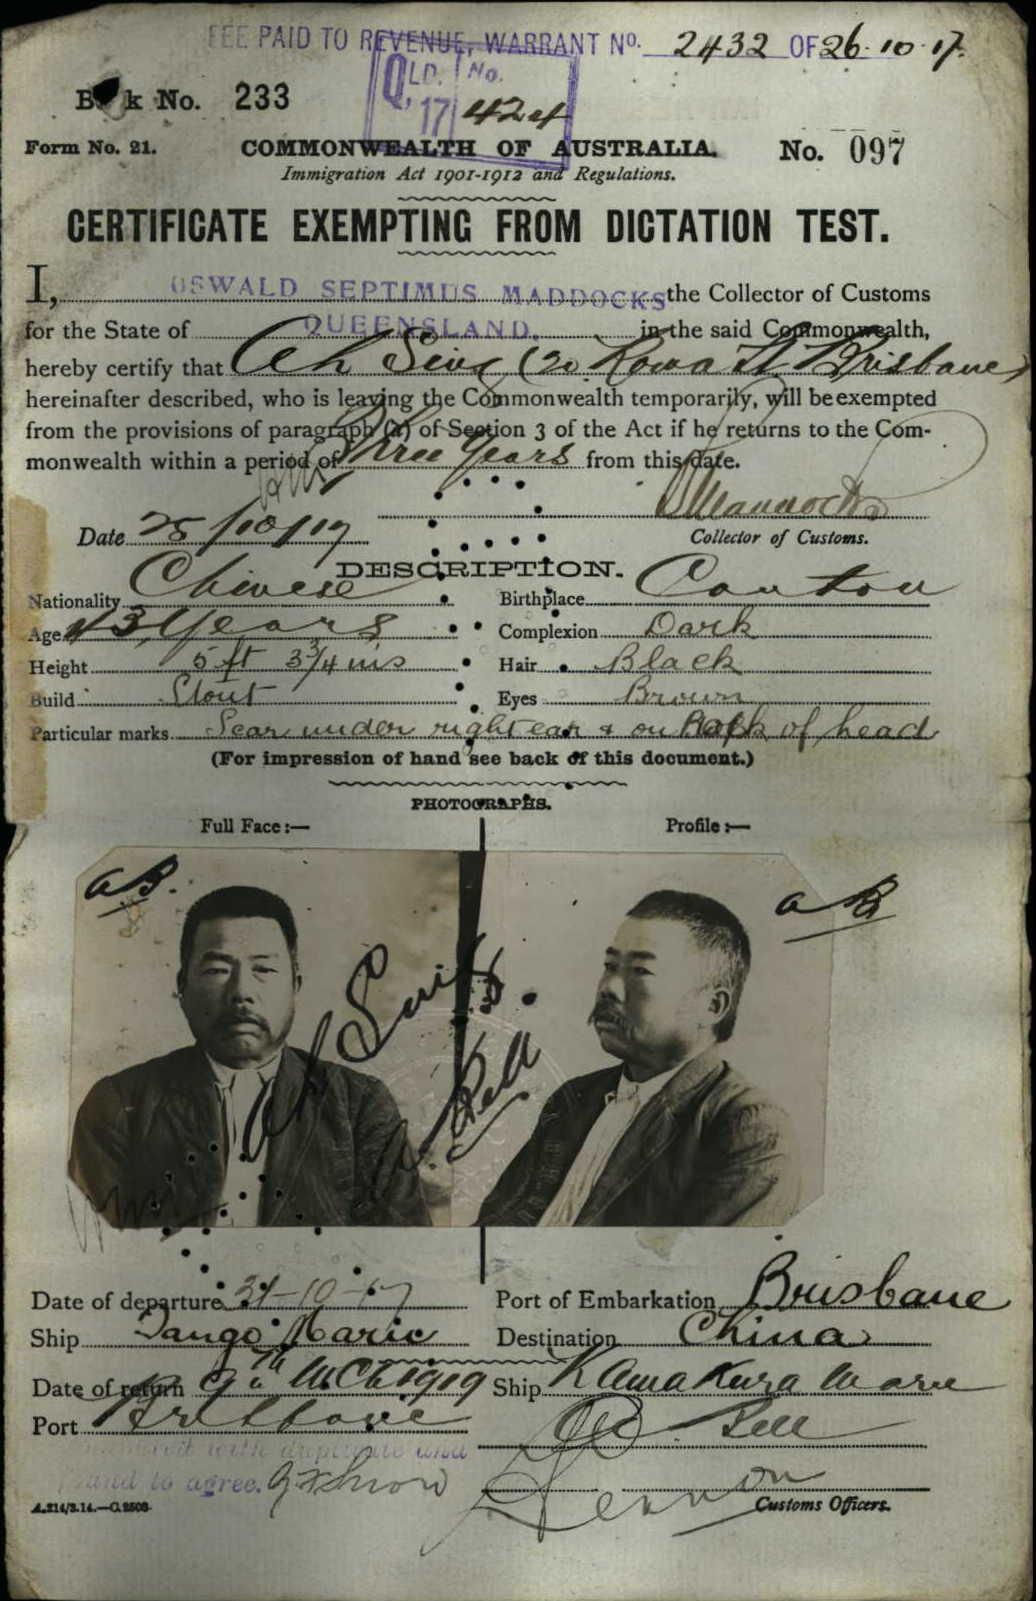 FEE PAID TO REVENUE, WARRANT No. 2432 OF 26.10.17.
QLD. No.
17 424
B k No. 233
Form No. 21. COMMONWEALTH OF AUSTRALIA. No. 097
Immigration Act 1901-1912 and Regulations.
CERTIFICATE EXEMPTING FROM DICTATION TEST.
I, OSWALD SEPTIMUS MADDOCKS the Collector of Customs
for the State of QUEENSLAND. in the said Commonwealth,
hereby certify that Ah Sing (20 Roma St Brisbane)
hereinafter described, who is leaving the Commonwealth temporarily, will be exempted
from the provisions of paragraph (a) of Section 3 of the Act if he returns to the Com-
monwealth within a period of Three Years from this date.
OSMaddocks
Date 25/10/17 Collector of Customs.
DESCRIPTION.
Nationality Chinese Birthplace Canton
Age 43 Years Complexion Dark
Height 5 ft 3 3/4 ins Hair Black
Build Stout Eyes Brown
Particular marks Scar under right ear & on Back of head
(For impression of hand see back of this document.)
PHOTOGRAPHS.
Full Face:— Profile:—
Ah Sing
Date of departure 31-10-17 Port of Embarkation Brisbane
Ship Tango Maru Destination China
Date of return 9th Mch 1919 Ship Kamakura Maru
Port Brisbane Bell
with duplicate and
and to agree. Snow Lennon
A.214/3.14.—C.2503. Customs Officers.